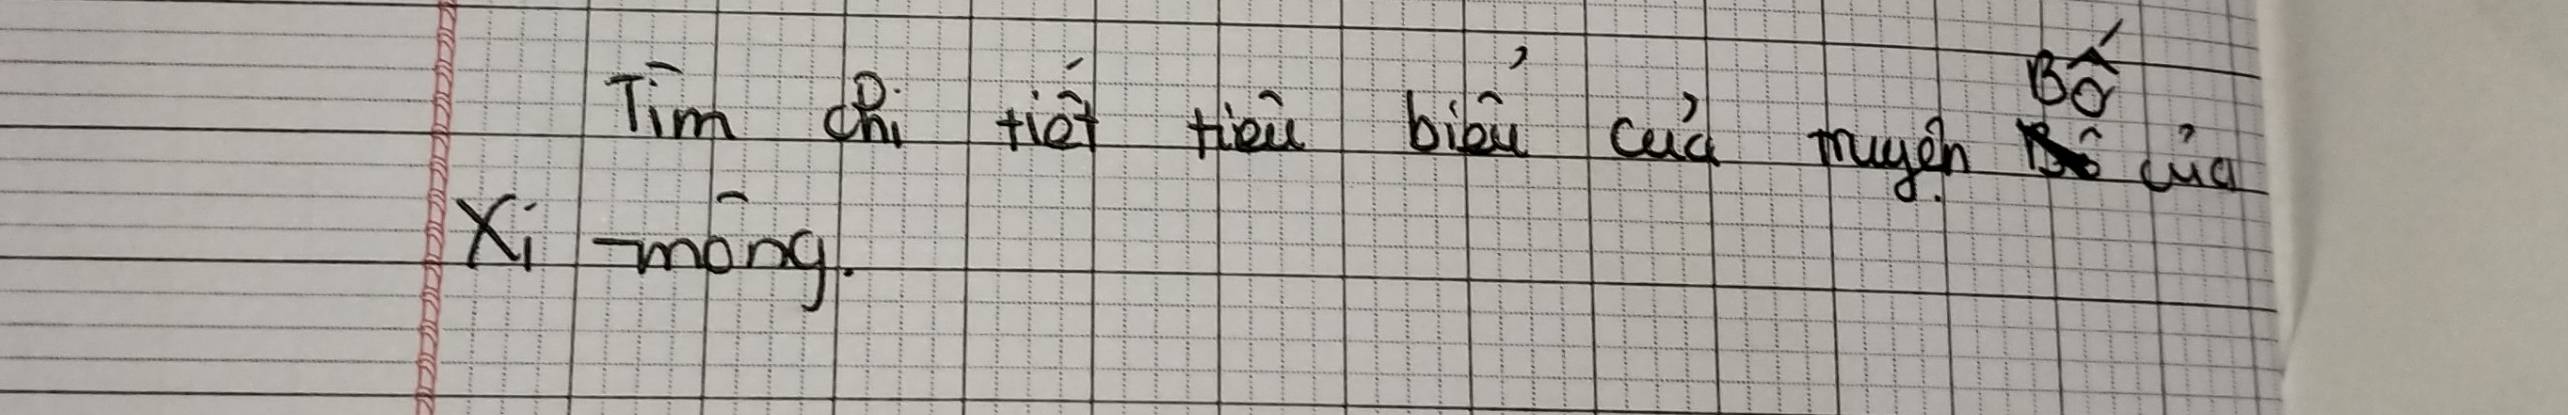 Tìm chi tiết tiêu biểu của truyện Bố của
Xi-mông.